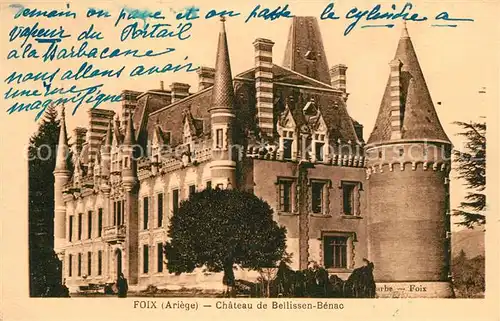 Demain on pave et on passe le cylindre à
vapeur du Portail
à la Barbacane
nous allons avoir
une rue
magnifique
rbe - Foix
FOIX (Ariège) — Château de Bellissen-Bénac